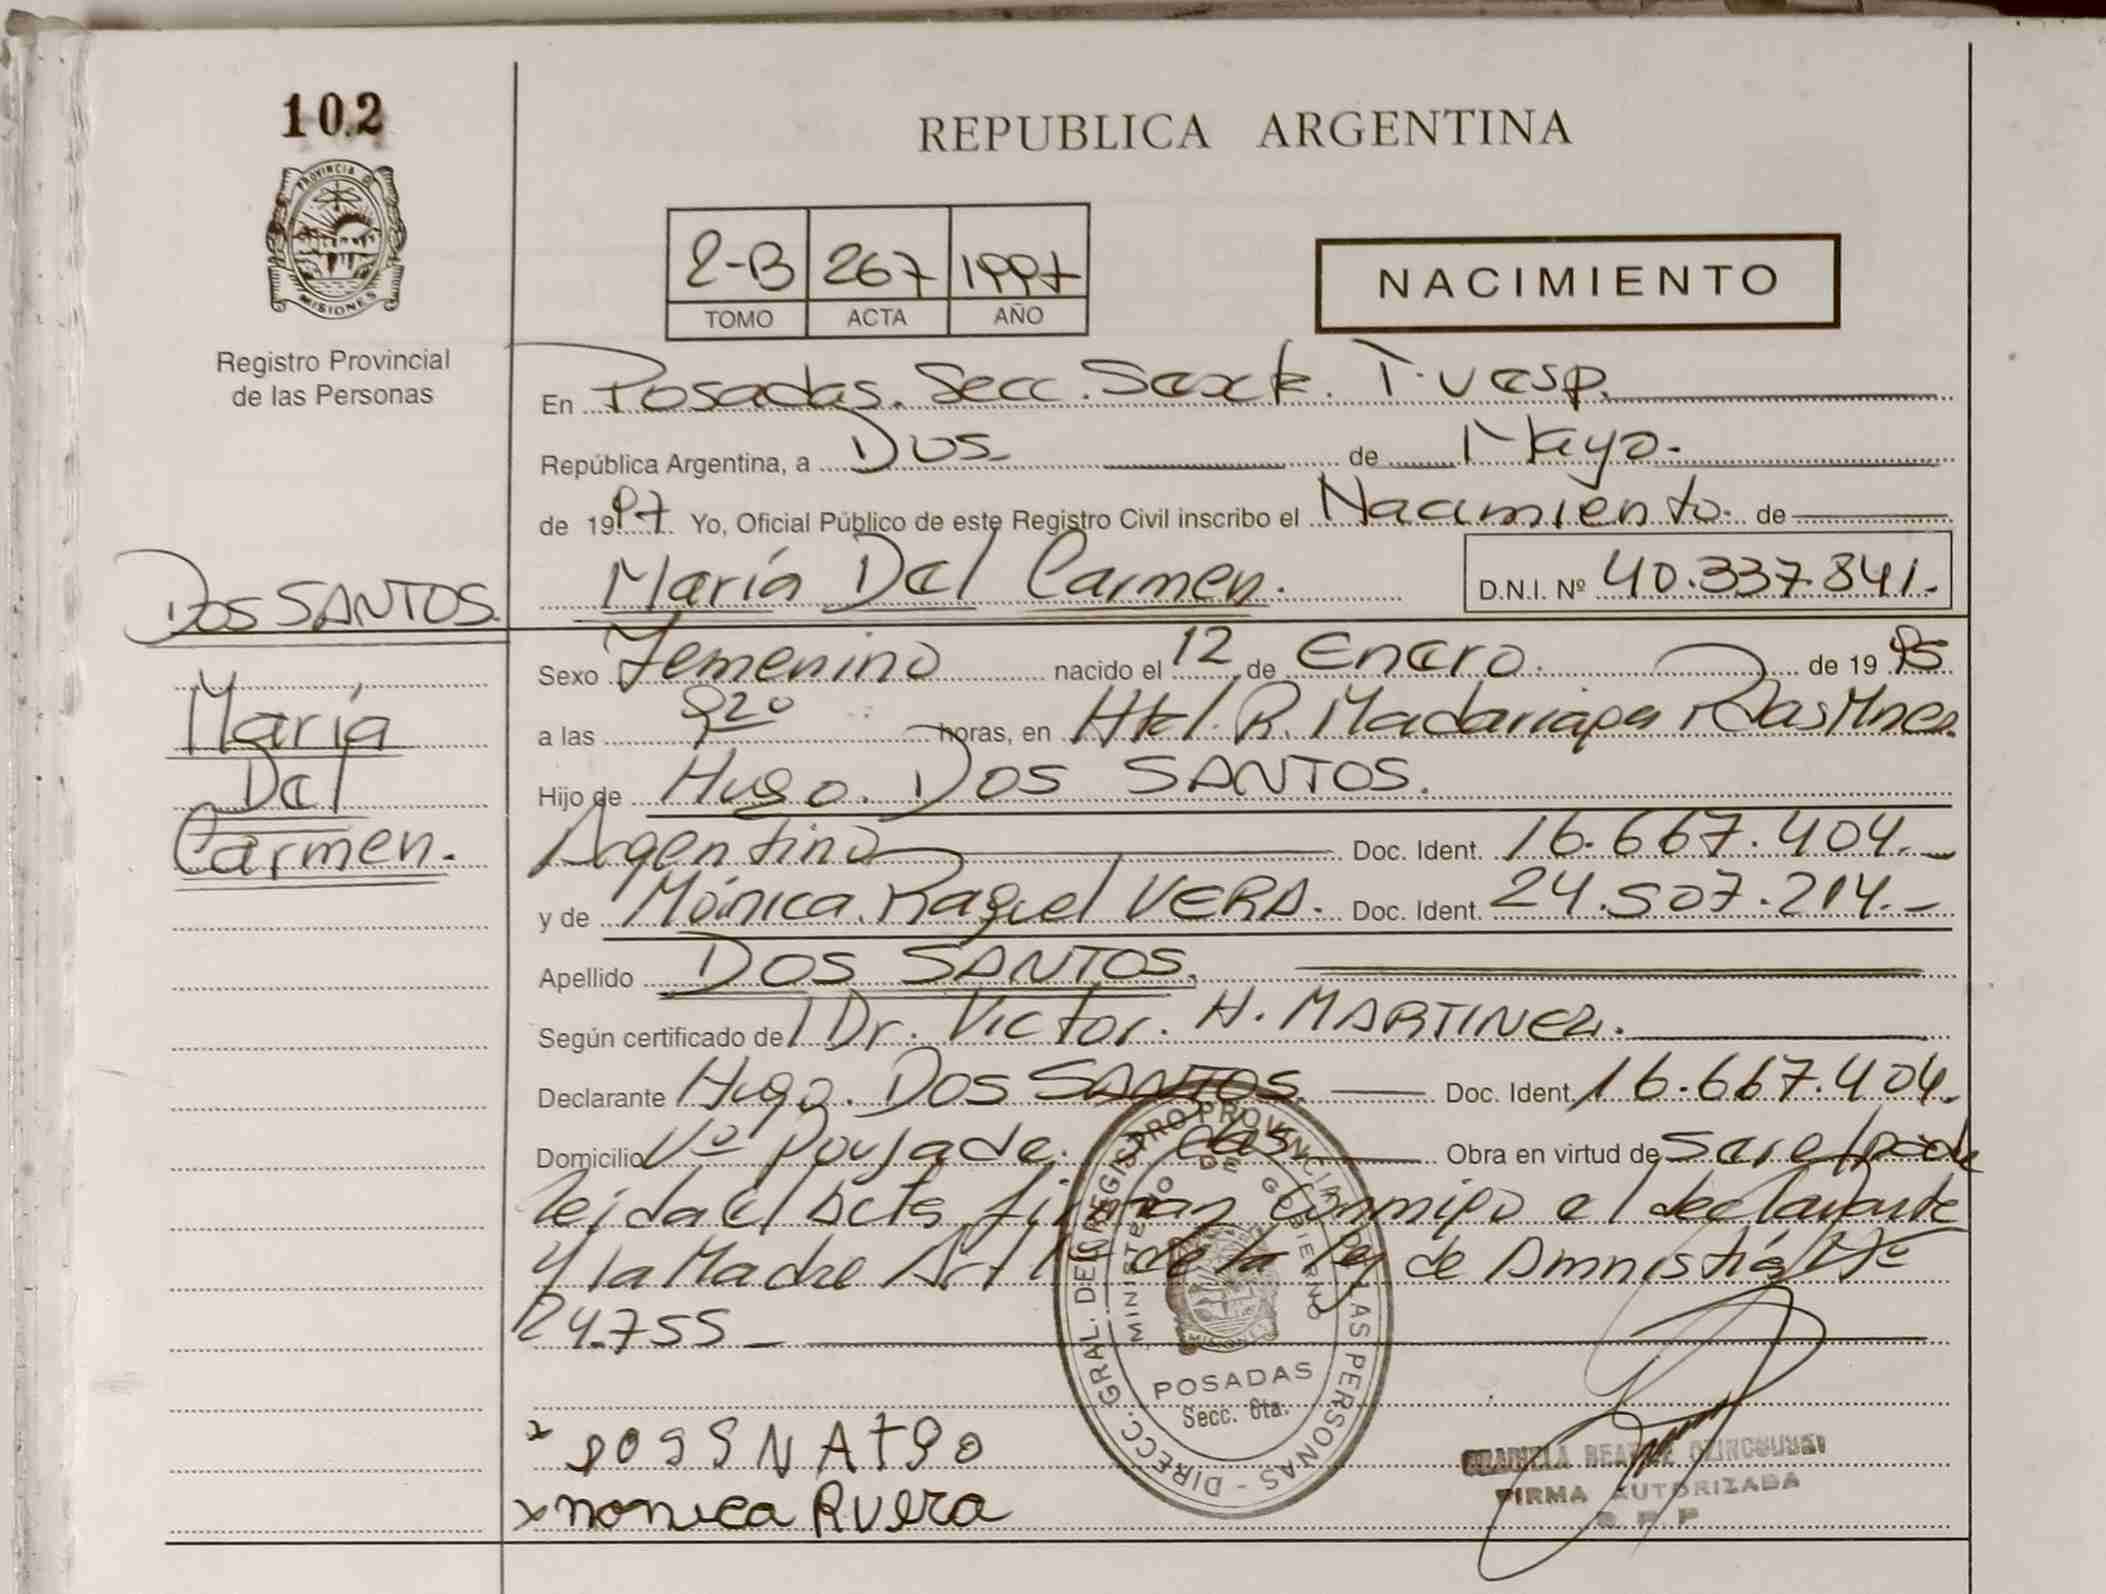 102
PROVINCIA D
MISIONES
Registro Provincial
de las Personas
REPUBLICA ARGENTINA
2-B 267 1997
TOMO ACTA AÑO
NACIMIENTO
En Posadas. Secc. Sexta. T. vesp.
República Argentina, a Dos de Mayo.
de 1997 Yo, Oficial Público de este Registro Civil inscribo el Nacimiento. de
María Del Carmen. D.N.I. Nº 40.337.841.-
DOS SANTOS.
María
Del
Carmen.
Sexo Femenino nacido el 12 de Enero. de 1995
a las 9 20 horas, en Htal. R. Madariaga Pdas Mnes.
Hijo de Hugo. DOS SANTOS.
Argentino Doc. Ident. 16.667.404.-
y de Mónica Raquel VERA. Doc. Ident. 24.507.214.-
Apellido DOS SANTOS.
Según certificado de Dr. Victor. H. MARTINEZ.
Declarante Hugo. DOS SANTOS. Doc. Ident. 16.667.404.
Domicilio Vº Obra en virtud de
leída el Acta firman conmigo el declarante
y la Madre Art de la ley de Amnistía Nº
24.755
DIRECC. GRAL. DEL REGISTRO PROVINCIAL DE LAS PERSONAS
MINISTERIO DE GOBIERNO
MISIONES
POSADAS
Secc. 6ta.
x DOSSNATSO
x monica Rvera
FIRMA AUTORIZADA